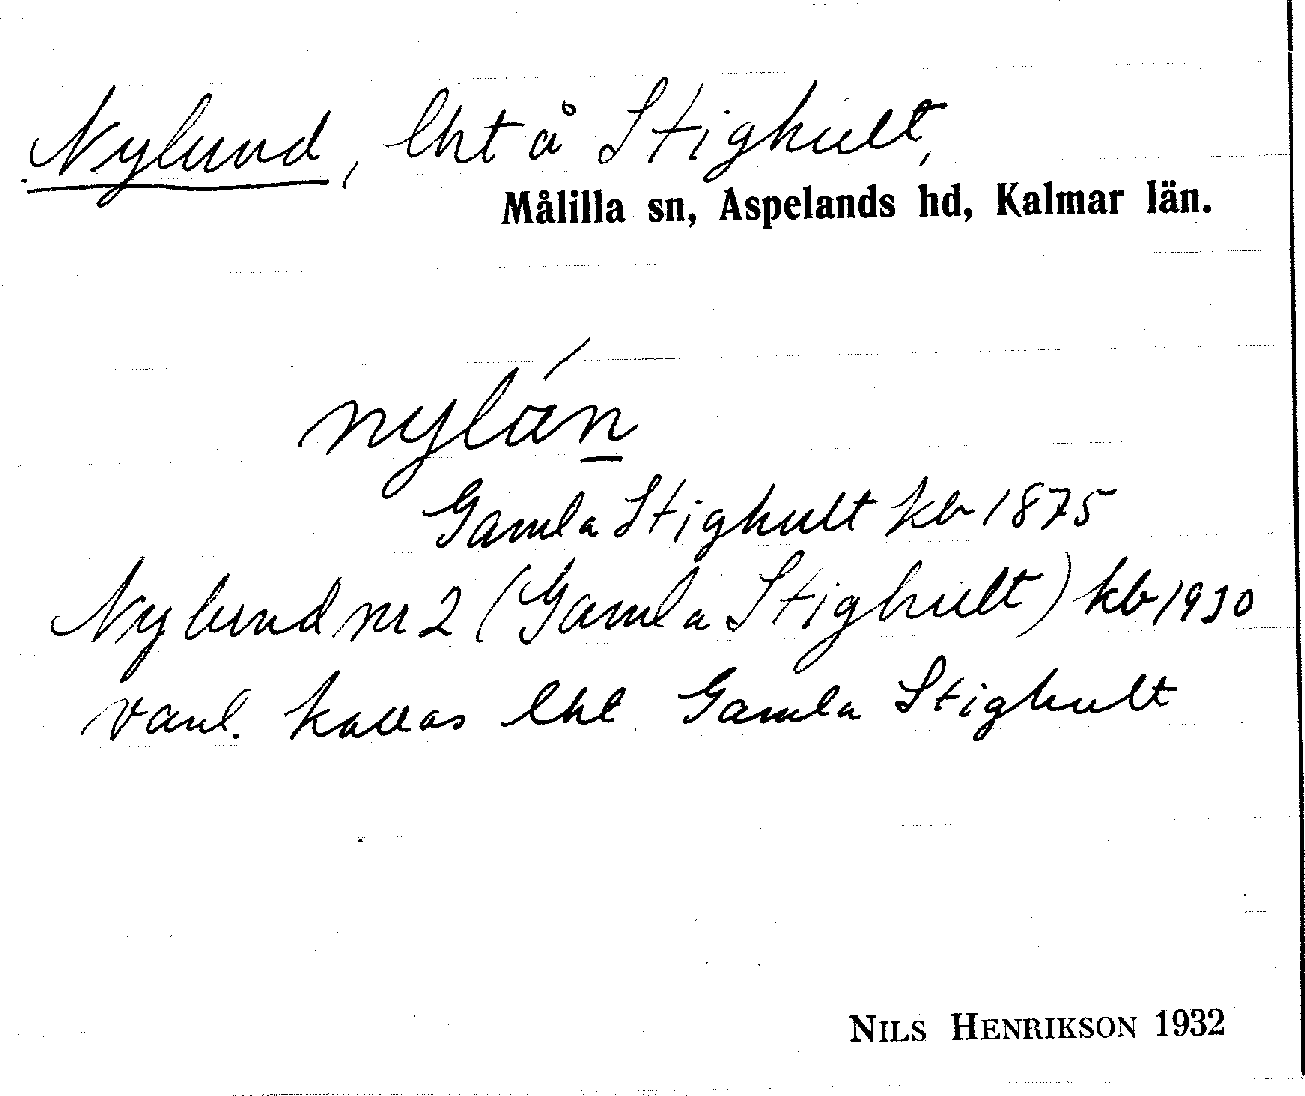 Nylund, lht å Stighult,
Målilla sn, Aspelands hd, Kalmar län.
nylán
Gamla Stighult kb 1875
Nylund nr 2 (Gamla Stighult) kb 1930
vanl. kallas lhl Gamla Stighult
NILS HENRIKSON 1932